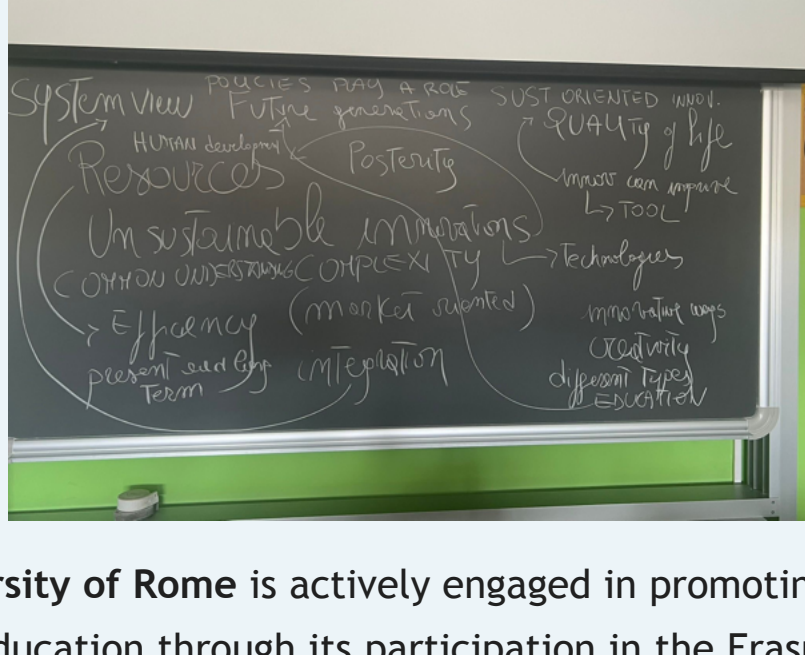 System view
POLICIES PLAY A ROLE
Future generations
SUST ORIENTED INNOV.
QUALITY of life
HUMAN development
Resources
Posterity
innov can improve
↳ TOOL
Unsustainable innovations
→ Technologies
COMMON UNDERSTANDING COMPLEXITY
Efficency (market oriented)
innovative ways
creativity
present and long
Term
integration
different Types
EDUCATION
rsity of Rome is actively engaged in promotin
ducation through its participation in the Eras